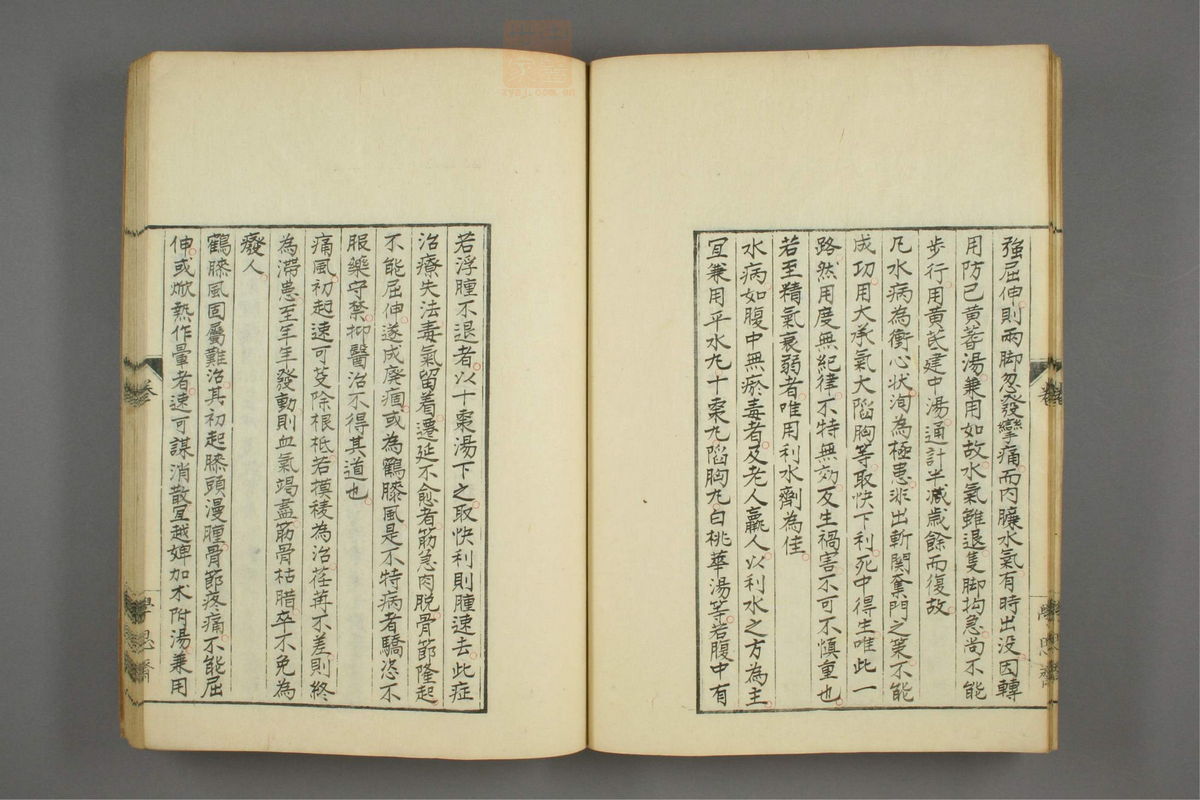 強屈伸則兩脚忽發攣痛而内臟水氣有時出没因轉
用防己黄蓍湯兼用如故水氣雖退隻脚拘急尚不能
歩行用黄芪建中湯通計半減歳餘而復故
凡水病為衝心状洵為極患非出斬関奪門之策不能
成功用大承氣大陷胸等取快下利死中得生唯此一
路然用度無紀律不特無効反生禍害不可不慎重也
若至精氣衰弱者唯用利水劑為佳
水病如腹中無瘀毒者及老人羸人以利水之方為主
宜兼用平水丸十棗丸陷胸丸白桃華湯等若腹中有
若浮腫不退者以十棗湯下之取快利則腫速去此症
治療失法毒氣留着遷延不愈者筋急肉脱骨節隆起
不能屈伸遂成廃痼或為鶴膝風是不特病者驕恣不
服藥守禁抑醫治不得其道也
痛風初起速可芟除根柢若摸稜為治荏苒不差則終
為滞患至年年發動則血氣竭盡筋骨枯腊卒不免為
癈人
鶴膝風固屬難治其初起膝頭漫腫骨節疼痛不能屈
伸或焮熱作暈者速可謀消散宜越婢加朮附湯兼用
卷
學思齋